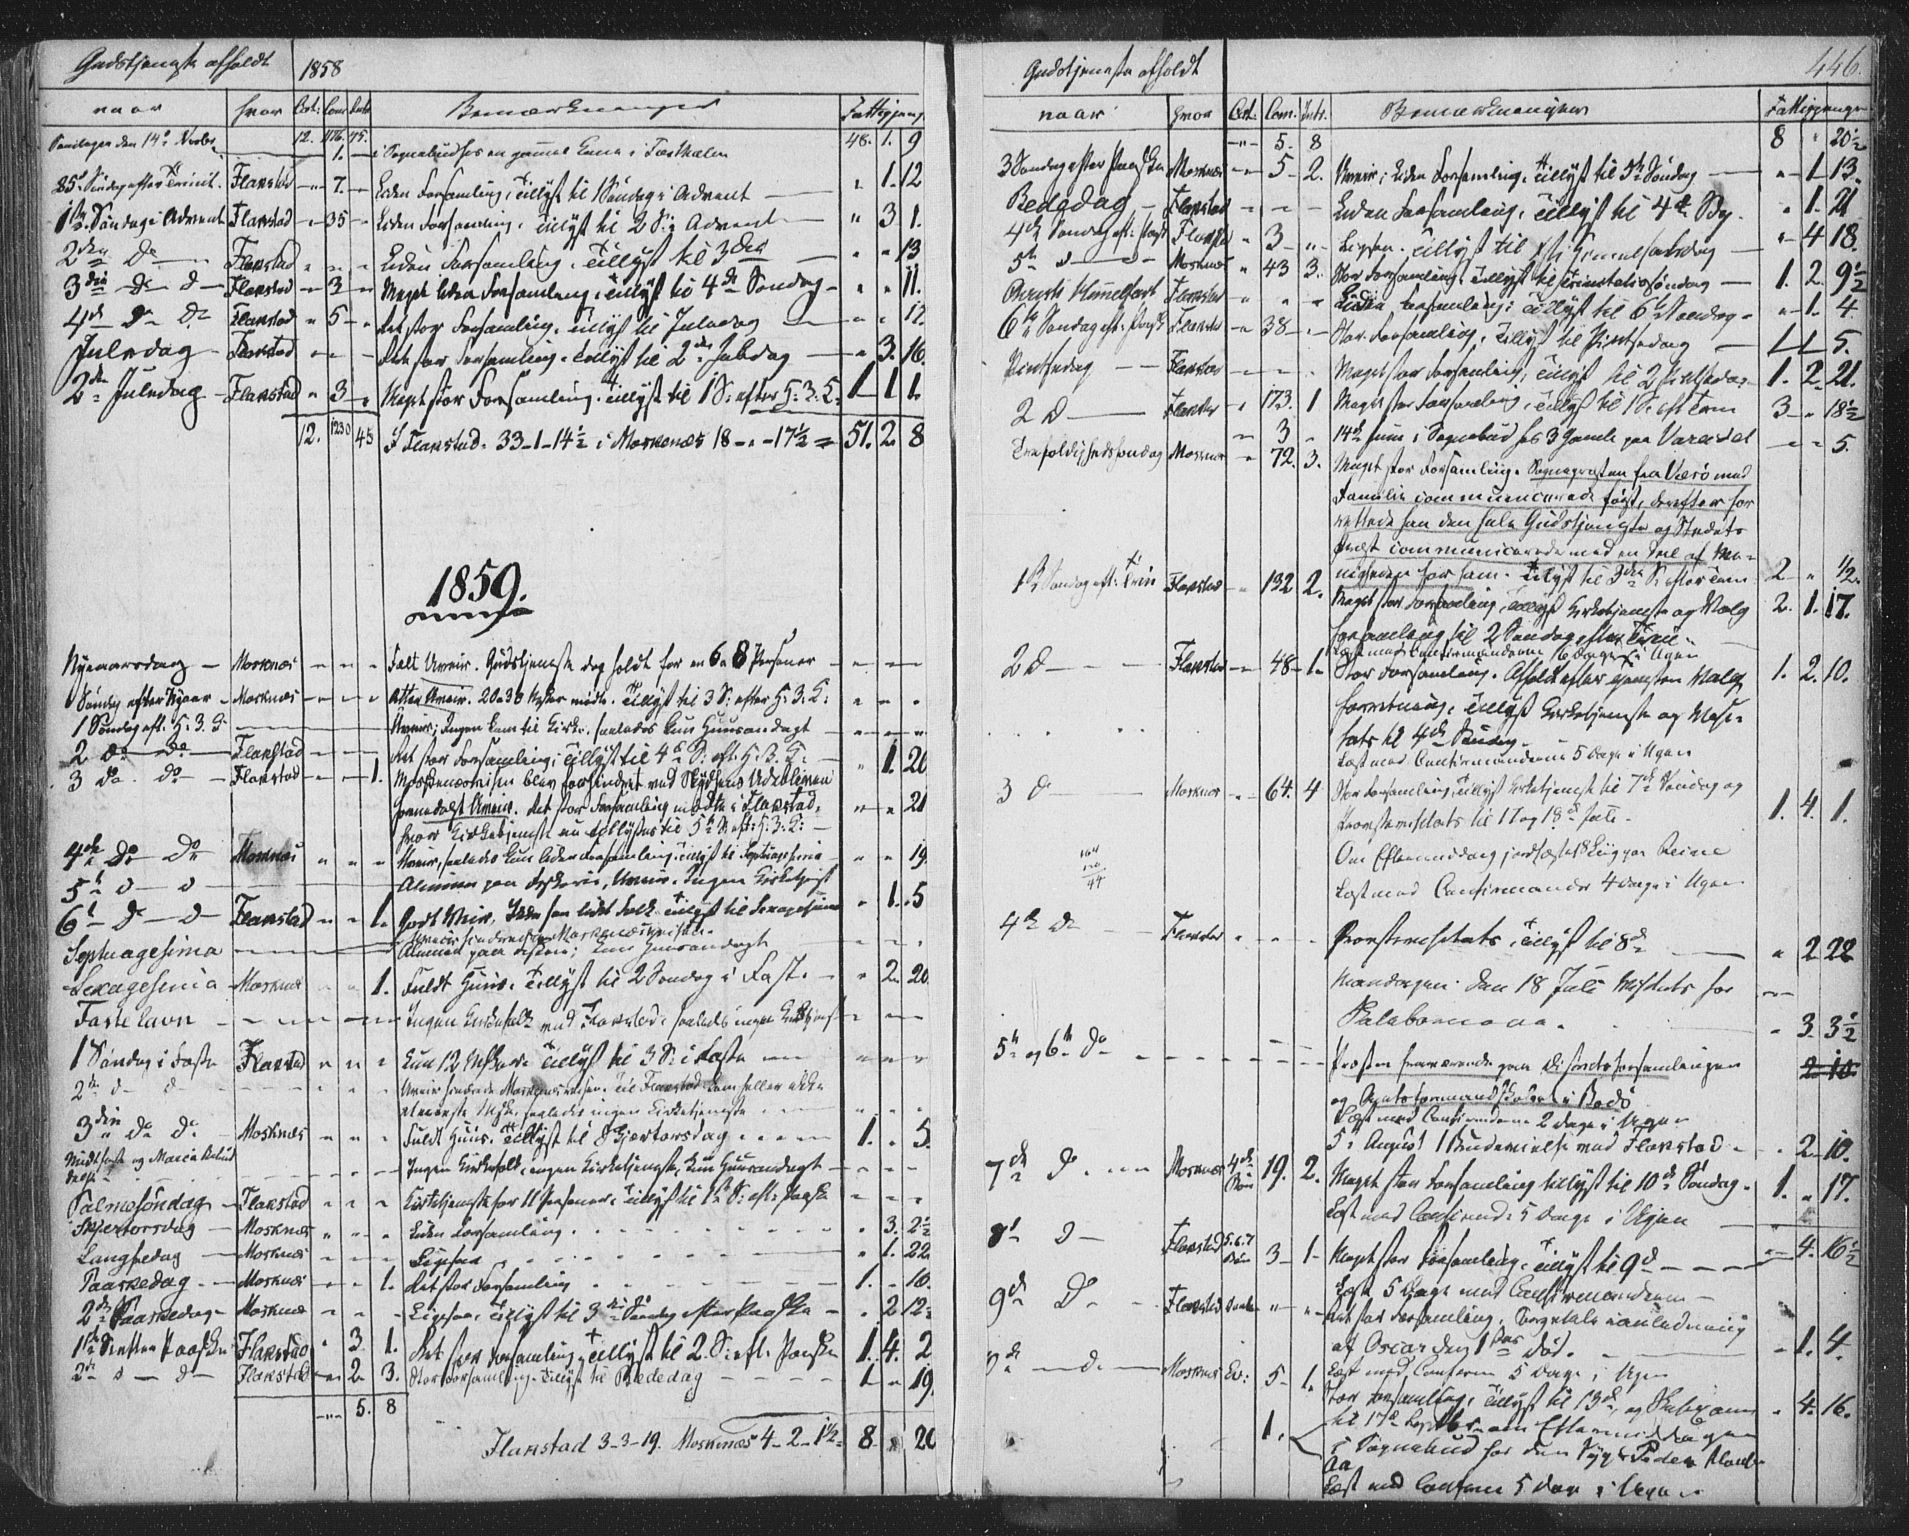 Gudstjeneste afholdt 1858
naar hvor Cat: Com: Intr: Bemærkninger Fattigpenge
Søndagen den 14de Novbr 12. 1176. 75. 48. 1. 9
1. i Sognebud hos en gammel Kone i
25de Søndag efter Trinit. Flakstad - 7. - Liden Forsamling. Tillyst til 1 Søndag i Advent - " 1. 12
1ste Søndag i Advent Flakstad - 35 - Liden Forsamling. Tillyst til 2 S. i Advent - " 3 1.
2den Do Flakstad " " " Liden Forsamling. Tillyst til 3die " " 13
3die Do Do Flakstad " 3 " Meget liden Forsamling. Tillyst til 4de Søndag - " " 11.
4de Do Do Flakstad " 5 - Ret stor Forsamling. Tillyst til Juledag " " 12.
Juledag - Flakstad " " - Ret stor Forsamling. Tillyst til 2den Juledag - " 3. 16.
2den Juledag - Flakstad " 3 - Meget stor Forsamling. Tillyst til 1 S. efter H. 3. K. 1 1 1.
12. 1230 45 I Flakstad. 33-1-14½ i Moskenæs 18 - " - 17½ = 51. 2. 8
1859.
Nyeaarsdag - Moskenæs - - - Fælt Uveir. Gudstjeneste dog holdt for en 6 a 8 Personer - - -
Søndag efter Nyaar - Moskenæs - - - Atter Uveir. 20 a 30 Msker mødte. Tillyst til 3 S. efter H. 3. K. " " "
1 Søndag eft. H. 3. K. Uveir; Ingen kom til Kirke, saaledes kun Huusandagt - - -
2 Do Do Flakstad - - - Ret stor Forsamling; Tillyst til 4de S. eft. H. 3. K. - " 1. 20
3 Do Do Flakstad - - 1. Moskenæsreisen blev forhindret ved Skydsens Udebliven
formedelst Uveir. Ret stor Forsamling mødte i Flakstad, " " 21
hvor Kirketjeneste nu tillystes til 5te S. eft. H. 3. K. -
4de Do Do Moskenæs " " " Uveir, saaledes kun liden Forsamling. Tillyst til Septuagesima " " 19.
5te D D Almuen paa Fiskerie, Uveir. Ingen Kirketjeneste
6te D D Flakstad " " 1. Godt Veir. Ikke saa lidet Folk. Tillyst til Sexagesima " 1. 5
Uveir hindrede Moskenæsreisen.
Septuagesima Almuen paa Fiskerie; kun Huusandagt " " "
Sexagesima Moskenæs " " 1. Fuldt Huus. Tillyst til 2 Søndag i Faste. - " 2. 20.
Fastelavn - - - - Ingen Kirkefolk ved Flakstad, saaledes ingen Kirketjeneste " - -
1 Søndag i Faste Flakstad " " " Kun 12 Msker. Tillyst til 3 S. i Faste " " "
2den D D Uveir hindrede Moskenæsreisen. Til Flakstad kom heller ikke
et eneste Mske, saaledes ingen Kirketjeneste " " "
3die Do Do Moskenæs " " " Fuldt Huus. Tillyst til Skjertorsdag 1. " 5.
Midtfaste og Mariæ Ingen Kirkefolk, ingen Kirketjeneste, kun Huusandagt - - -
Palmesøndag - Flakstad " " " Kirketjeneste for 11 Personer. Tillyst til 1ste S. eft. Paaske " " "
Skjertorsdag - Moskenæs " " " Liden Forsamling " 3. 2½
Langfredag - Moskenæs " " " Ligesaa " 1. 22
Paaskedag - Moskenæs - - 1. Ret stor Forsamling 1. - 16.
2den Paaskedag - Moskenæs " " - Ligesaa, Tillyst til 3die Søndag efter Paaske - " 2 12½
1ste S. efter Paaske Flakstad " 3. 1. Ret stor Forsamling, Tillyst til 2. S. eft. Paaske 1. 4. 2
2den D - D Flakstad - 2 3. Stor Forsamling. Tillyst til Bededag 1 - 19.
- 5. 8
Flakstad 3-3-19. Moskenæs 4-2-1½ 8. " 20
446.
Gudstjeneste afholdt
naar hvor Cat. Com. Intr. Bemærkninger Fattigpenge
" 5. 8 8 " 20½
3 Søndag efter Paaske Moskenæs - 5 - 2. Uveir; Liden Forsamling. Tillyst til 5te Søndag " 1 13.
Bededag - Flakstad - - - Liden Forsamling. Tillyst til 4de Sg. " 1. 21
4de Søndag eft. Paaske Flakstad " 3 - " Ligesaa. Tillyst til Xsti Himmelfartsdag " 4 18.
5te D Moskenæs " 43 3. Stor Forsamling. Tillyst til Trinitatissøndag 1. 2. 9½
Christi Himmelfart Flakstad " " " Liden Forsamling; Tillyst til 6te Søndag " 1. 4.
6te Søndag eft. Paask. Flakstad - 38 - Stor Forsamling, Tillyst til Pintsedag - 1 1 5.
Pintsedag - Flakstad - - - Meget stor Forsamling; Tillyst til 2 Pintsedag 1. 2. 21.
2 D Flakstad - 173. 1 Meget stor Forsamling, Tillyst til 1 S. eft Trin 3 " 18½
" 3 " 14de Juni i Sognebud hos 3 Gamle paa - - 5.
Trefoldighedssøndag Moskenæs " 72. 3. Meget stor Forsamling. Sognepræsten fra Værø med
Familie communicerede først, derefter for-
rettede han den hele Gudstjeneste og Stedets
Præst communicerede med en Deel af Me-
nigheden for ham. Tillyst til 3die S. efter Trin 2 " ½
1ste Søndag eft. Trin Flakstad - 132 2. Meget stor Forsamling. Tillyst Kirketjeneste og Valg 2. 1. 17.
forsamling til 2 Søndag efter Trin.
Læst med Confirmanderne 6 Dage i Ugen
2 D Flakstad - 48 - 1 - Stor Forsamling. Afholdt efter Tjenesten Valg 1. 2. 10.
forretning. Tillyst Kirketjeneste og
tats til 4de Søndag -
Læst med Confirmanderne 5 Dage i Ugen
3 D Moskenæs - 64. 4 Stor Forsamling. Tillyst Kirketjeneste til 7de Søndag og
Provstevisitats til 17 og 18de Juli - 1. 4. 1.
Om Eftermiddagen jordfæstet Liig paa Reine
Læst med Confirmander 4 Dage i Ugen
4de Do Flakstad " " " Provstevisitats, Tillyst til 8de " 2 22
Mandagen den 18 Juli Visitats for
Skolebørnene. " 3. 3½
5te og 6te Do - - - Præsten fraværende paa Districtsforsamlingen 2 10.
og i Bodø
Læst med Confirmanderne 2 Dage i Ugen
5 August 1 Brudevielse ved Flakstad - " 2 10.
7de D. Moskenæs 4de Bøn 19. 2. Meget stor Forsamling tillyst til 10de Søndag. 1. " 17.
Læst med Confirmd. 5 Dage i Ugen
8de D Flakstad 5.6.7 Bøn 3 - 1 - Meget stor Forsamling, Tillyst til 9de - 4. 16½
Læst 5 Dage med Confirmanderne -
9de D. Flakstad " " Ret stor Forsamling, Sørgetale i anledning
af Oscar den 1stes Død. - 1. 4.
Læst med Conferm 5 Dage i Ugen
D. Moskenæs Ev: 5 - 1. Stor Forsamling, Tillyst til 13de, og " 4. 16.
til 17de Septbr. om Eftermiddagen
1. i Sognebud hos den syge Peder
Aa
Læst med Conferm 5 Dage i Ugen